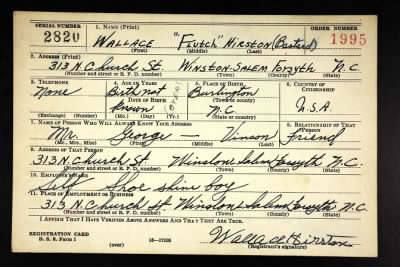 SERIAL NUMBER 1. NAME (Print) ORDER NUMBER
2820 WALLACE "FLUTCH" HIRSTON (Bastard) 1995
(First) (Middle) (Last)
2. ADDRESS (Print)
313 N. CHURCH ST. WINSTON-SALEM FORSYTH N.C.
(Number and street or R. F. D. number) (Town) (County) (State)
3. TELEPHONE 4. AGE IN YEARS 5. PLACE OF BIRTH 6. COUNTRY OF CITIZENSHIP
None Birth not Burlington
DATE OF BIRTH (Town or county)
known N.C U.S.A.
(Exchange) (Number) (Mo.) (Day) (Yr.) (State or country)
7. NAME OF PERSON WHO WILL ALWAYS KNOW YOUR ADDRESS 8. RELATIONSHIP OF THAT PERSON
Mr. George — Vinson Friend
(Mr., Mrs., Miss) (First) (Middle) (Last)
9. ADDRESS OF THAT PERSON
313 N. Church St. Winston-Salem Forsyth N.C.
(Number and street or R. F. D. number) (Town) (County) (State)
10. EMPLOYER'S NAME
Self Shoe shine boy
11. PLACE OF EMPLOYMENT OR BUSINESS
313 N. Church St. Winston-Salem Forsyth N.C.
(Number and street or R. F. D. number) (Town) (County) (State)
I AFFIRM THAT I HAVE VERIFIED ABOVE ANSWERS AND THAT THEY ARE TRUE.
REGISTRATION CARD
D. S. S. Form 1 (over) 16—17105 Wallace Hirston
(Registrant's signature)